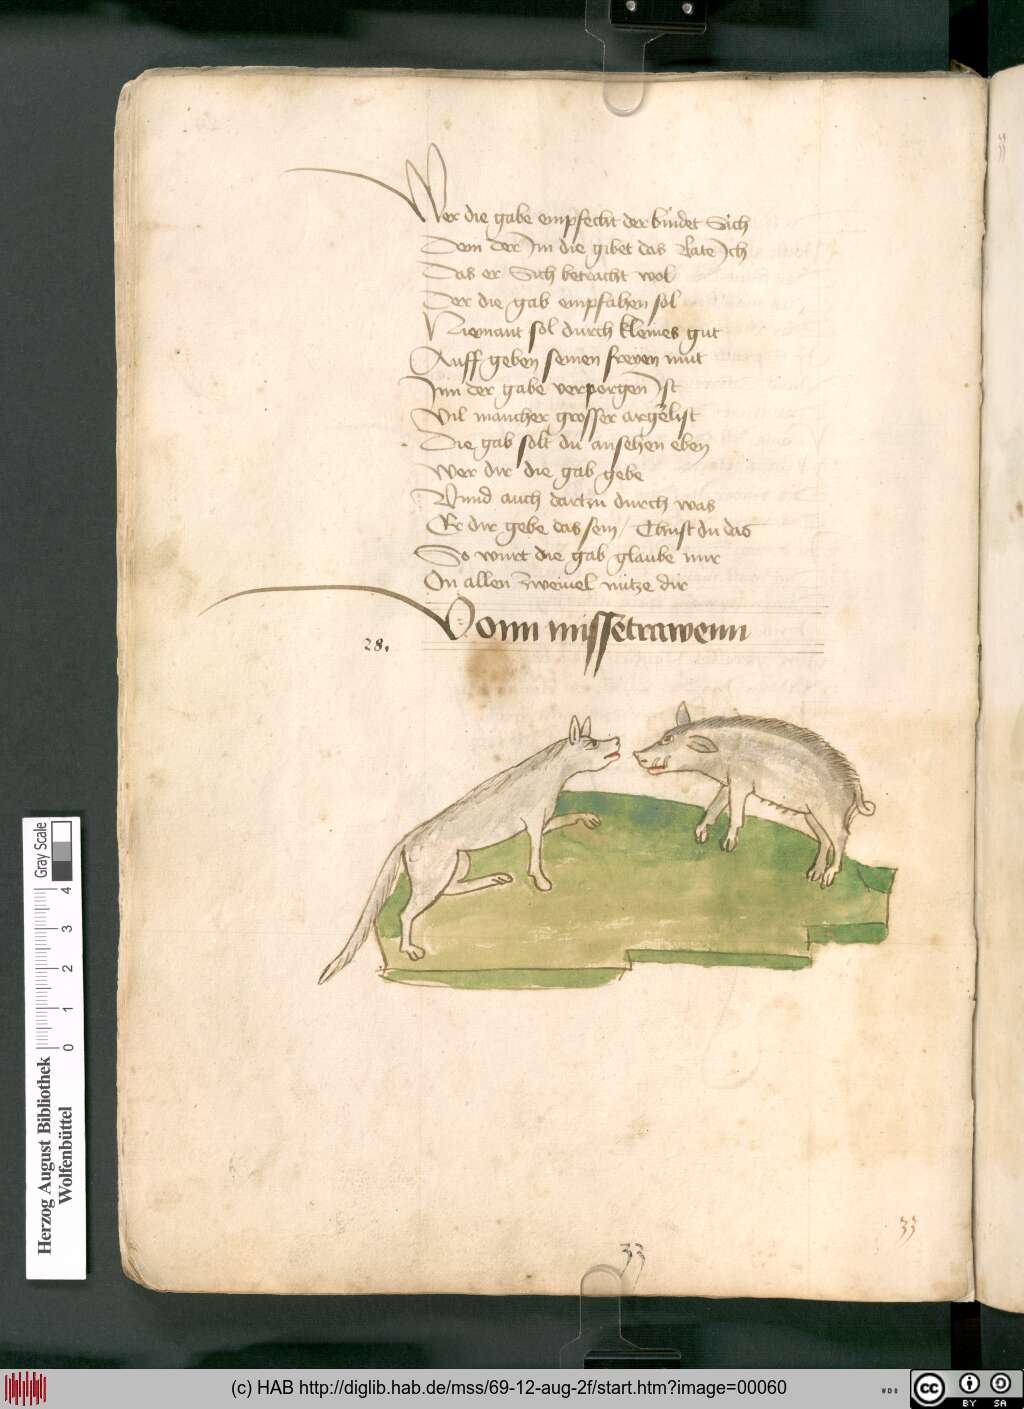 Wer die gabe empfecht der bindet Sich
Dem der Im die gibet das Rate Ich
Das er Sich betracht wol
Der die gab empfahen sol
Niemant sol durch kleines gut
Auff geben seinen freyen mut
Inn der gabe verporgen Ist
Vil mancher grosser argelist
Die gab solt du ansehen eben
Wer dir die gab gebe
Vnnd auch dartzu durch was
Er dir gebe das sein / Thust du das
So wirt die gab glaube mir
On allen zweiuel nütze dir
Vonn missetrawenn
28.
33
33
Gray Scale
4
3
2
1
0
Herzog August Bibliothek
Wolfenbüttel
(c) HAB http://diglib.hab.de/mss/69-12-aug-2f/start.htm?image=00060
WDB
cc BY SA